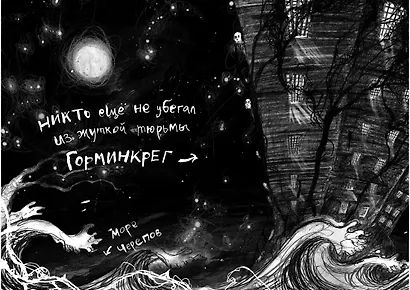 НИКТО ещё не убегал
из жуткой тюрьмы
ГОРМИНКРЕГ →
море
черепов